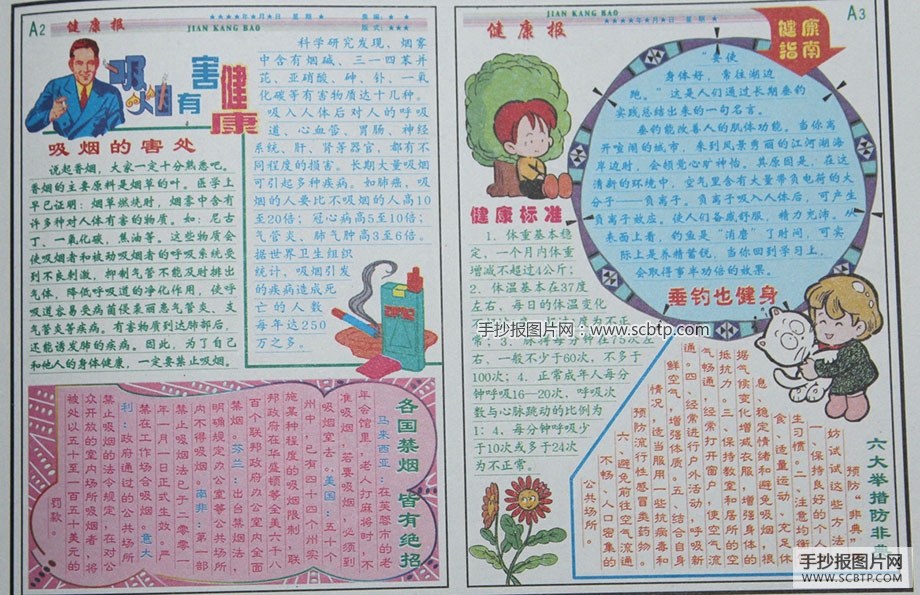 A2
健康报
★★★★年★月★日 星期★
JIAN KANG BAO
责编：★ ★
版式：★★★
吸烟有害健康
吸烟的害处
说起香烟，大家一定十分熟悉吧。
香烟的主要原料是烟草的叶。医学上
早已证明：烟草燃烧时，烟雾中含有
许多种对人体有害的物质。如：尼古
丁、一氧化碳，焦油等。这些物质会
使吸烟者和被动吸烟者的呼吸系统受
到不良刺激，抑制气管不能及时排出
气体，降低呼吸道的净化作用，使呼
吸道容易受病菌侵袭而患气管炎、支
气管炎等疾病。有害物质到达肺部后，
还能诱发肺的疾病。因此，为了自己
和他人的身体健康，一定要禁止吸烟。
科学研究发现，烟雾
中含有烟碱、三一四苯并
芘、亚硝酸、砷、钋、一氧
化碳等有害物质达十几种。
吸入人体后对人的呼吸
道、心血管、胃肠、神经
系统、肝、肾等器官，都有不
同程度的损害。长期大量吸烟
可引起多种疾病。如肺癌，吸
烟的人要比不吸烟的人高10
至20倍；冠心病高5至10倍；
气管炎、肺气肿高3至6倍。
据世界卫生组织
统计，吸烟引发
的疾病造成死
亡的人数
每年达250
万之多。
各国禁烟 皆有绝招
马来西亚：在芙蓉市的老
年会馆里，老人打麻将时，不
准吸烟，若要吸烟，必须到
吸烟室去。美国：五十个
州中，已有四十四个州实
施某种程度的吸烟限制，联
邦政府在华盛顿等全美六千八
百个联邦政府办公室内全面
禁烟。芬兰：出台禁烟法，
明确规定办公室等公共场所
内不得吸烟。南非：第一部
禁止吸烟法已于二零零一
年一月一日正式生效。严
禁在工作场合吸烟。意大
利：政府通过的公共场所
禁止吸烟的法令规定，在对公
众开放的室内场所吸烟者，将
被处以五十至一百五十美元的
罚款。
健康报
JIAN KANG BAO
★★★★年★月★日 星期★
A3
健康指南
“要使
身体好，常往湖边
跑。”这是人们通过长期垂钓
实践总结出来的一句名言。
垂钓能改善人的肌体功能。当你离
开喧闹的城市，来到风景秀丽的江河湖海
岸边时，会顿觉心旷神怡。其原因是，在这
清新的环境中，空气里含有大量带负电荷的大
分子——负离子。负离子吸入人体后，可产生
负离子效应，使人们备感舒服，精力充沛。从
表面上看，钓鱼是“消磨”了时间，可实
际上是养精蓄锐，当你回到学习上，
会取得事半功倍的效果。
垂钓也健身
健康标准
1、体重基本稳
定，一个月内体重
增减不超过4公斤；
2、体温基本在37度
左右，每日的体温变化
常；3、脉搏每分钟在75次左
右，一般不少于60次，不多于
100次；4、正常成年人每分
钟呼吸16—20次，呼吸次
数与心脉跳动的比例为
1：4，每分钟呼吸少
于10次或多于24次
为不正常。
六大举措防非典
预防“非典”，
妨试试这些方法：
一、保持良好的个人
生习惯。二、注意均衡
食、适量运动、充足休
息、稳定情绪和避免吸烟，根
据气候变化增减衣服，增强身体的
抵抗力。三、保持教室和居所的空
气畅通，经常打开窗户，使空气流
通。四、经常进行户外活动，呼吸新
鲜空气，增强体质。五、结合自身
情况，适当服用一些抗病毒和
预防流行性感冒类药物。
六、避免前往空气流通
不畅、人口密集的
公共场所。
手抄报图片网：www.scbtp.com
手抄报图片网
WWW.SCBTP.COM